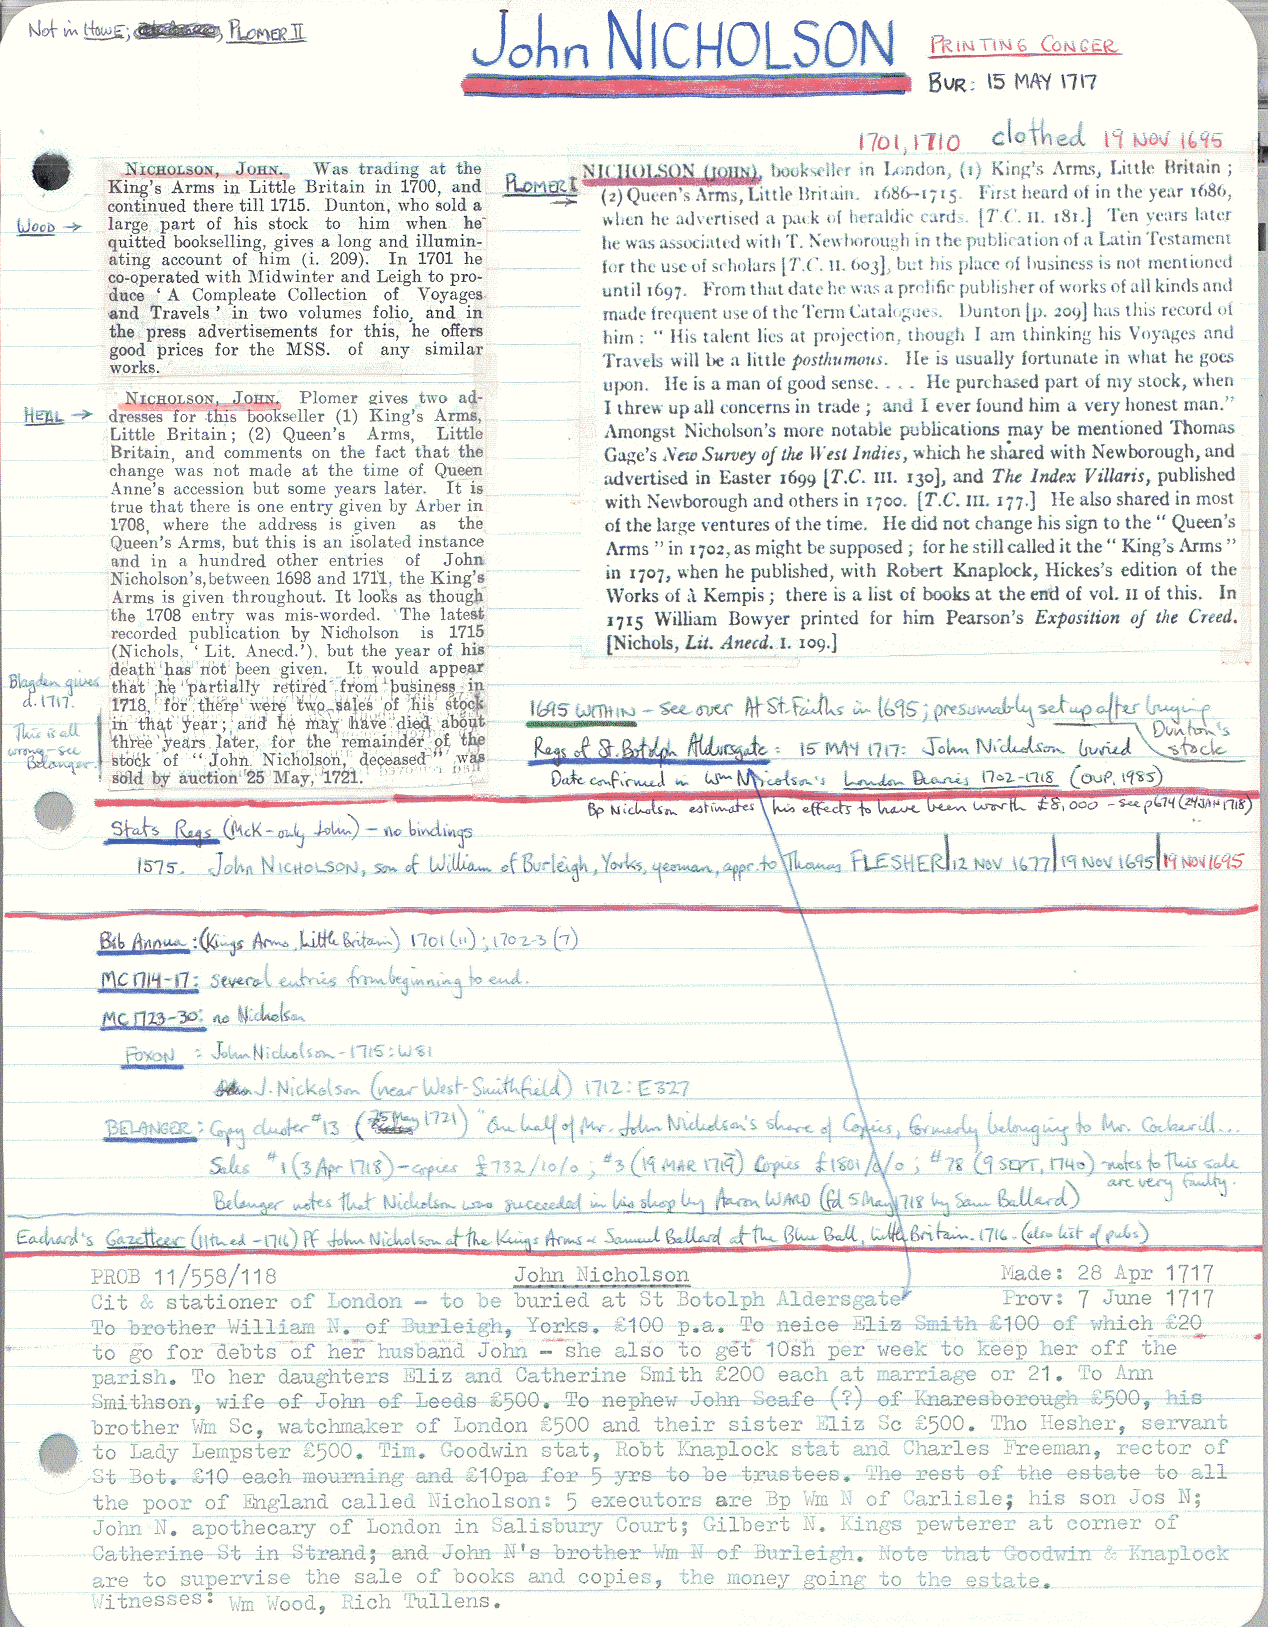 Not in HOWE; PLOMER II
John NICHOLSON
PRINTING CONGER
BUR: 15 MAY 1717
1701, 1710 clothed 19 NOV 1695
WOOD →
NICHOLSON, JOHN. Was trading at the
King's Arms in Little Britain in 1700, and
continued there till 1715. Dunton, who sold a
large part of his stock to him when he
quitted bookselling, gives a long and illumin-
ating account of him (i. 209). In 1701 he
co-operated with Midwinter and Leigh to pro-
duce ' A Compleate Collection of Voyages
and Travels ' in two volumes folio, and in
the press advertisements for this, he offers
good prices for the MSS. of any similar
works.
HEAL →
NICHOLSON, JOHN. Plomer gives two ad-
dresses for this bookseller (1) King's Arms,
Little Britain ; (2) Queen's Arms, Little
Britain, and comments on the fact that the
change was not made at the time of Queen
Anne's accession but some years later. It is
true that there is one entry given by Arber in
1708, where the address is given as the
Queen's Arms, but this is an isolated instance
and in a hundred other entries of John
Nicholson's, between 1698 and 1711, the King's
Arms is given throughout. It looks as though
the 1708 entry was mis-worded. The latest
recorded publication by Nicholson is 1715
(Nichols, ' Lit. Anecd.'), but the year of his
death has not been given. It would appear
that he partially retired from business in
1718, for there were two sales of his stock
in that year; and he may have died about
three years later, for the remainder of the
stock of " John Nicholson, deceased " was
sold by auction 25 May, 1721.
Blagden gives
d. 1717.
This is all
wrong - see
Belanger.
PLOMER I →
NICHOLSON (JOHN), bookseller in London, (1) King's Arms, Little Britain ;
(2) Queen's Arms, Little Britain. 1686-1715. First heard of in the year 1686,
when he advertised a pack of heraldic cards. [T.C. II. 181.] Ten years later
he was associated with T. Newborough in the publication of a Latin Testament
for the use of scholars [T.C. II. 603], but his place of business is not mentioned
until 1697. From that date he was a prolific publisher of works of all kinds and
made frequent use of the Term Catalogues. Dunton [p. 209] has this record of
him : " His talent lies at projection, though I am thinking his Voyages and
Travels will be a little posthumous. He is usually fortunate in what he goes
upon. He is a man of good sense. . . . He purchased part of my stock, when
I threw up all concerns in trade ; and I ever found him a very honest man."
Amongst Nicholson's more notable publications may be mentioned Thomas
Gage's New Survey of the West Indies, which he shared with Newborough, and
advertised in Easter 1699 [T.C. III. 130], and The Index Villaris, published
with Newborough and others in 1700. [T.C. III. 177.] He also shared in most
of the large ventures of the time. He did not change his sign to the " Queen's
Arms " in 1702, as might be supposed ; for he still called it the " King's Arms "
in 1707, when he published, with Robert Knaplock, Hickes's edition of the
Works of à Kempis ; there is a list of books at the end of vol. II of this. In
1715 William Bowyer printed for him Pearson's Exposition of the Creed.
[Nichols, Lit. Anecd. I. 109.]
1695 WITHIN - see over At St. Faiths in 1695; presumably set up after buying
Dunton's
stock
Regs of St. Botolph Aldersgate: 15 MAY 1717: John Nicholson buried
Date confirmed in Wm Nicolson's London Diaries 1702-1718 (OUP, 1985)
Bp Nicholson estimates his effects to have been worth £8,000 - see p 674 (24 JAN 1718)
Stats Regs (McK - only John) - no bindings
1575. John NICHOLSON, son of William of Burleigh, Yorks, yeoman, appr. to Thomas FLESHER | 12 NOV 1677 | 19 NOV 1695 | 19 NOV 1695
Bib Annua: (Kings Arms, Little Britain) 1701 (11); 1702-3 (7)
MC 1714-17: several entries from beginning to end.
MC 1723-30: no Nicholson
FOXON: John Nicholson - 1715: W81
J. Nickolson (near West-Smithfield) 1712: E327
BELANGER: Copy cluster #13 (25 May 1721) "One half of Mr. John Nicholson's share of Copies, formerly belonging to Mr. Cockerill...
Sales #1 (3 Apr 1718) - copies £732/10/0; #3 (19 MAR 1719) Copies £1801/0/0; #78 (9 SEPT, 1740) - notes to this sale
are very faulty.
Belanger notes that Nicholson was succeeded in his shop by Aaron WARD (fd 5 May 1718 by Sam Ballard)
Eachard's Gazetteer (11th ed - 1716) PF John Nicholson at the Kings Arms & Samuel Ballard at the Blue Ball, Little Britain. 1716. (also list of pubs)
PROB 11/558/118 John Nicholson Made: 28 Apr 1717
Cit & stationer of London - to be buried at St Botolph Aldersgate Prov: 7 June 1717
To brother William N. of Burleigh, Yorks. £100 p.a. To neice Eliz Smith £100 of which £20
to go for debts of her husband John - she also to get 10sh per week to keep her off the
parish. To her daughters Eliz and Catherine Smith £200 each at marriage or 21. To Ann
Smithson, wife of John of Leeds £500. To nephew John Scafe (?) of Knaresborough £500, his
brother Wm Sc, watchmaker of London £500 and their sister Eliz Sc £500. Tho Hesher, servant
to Lady Lempster £500. Tim. Goodwin stat, Robt Knaplock stat and Charles Freeman, rector of
St Bot. £10 each mourning and £10pa for 5 yrs to be trustees. The rest of the estate to all
the poor of England called Nicholson: 5 executors are Bp Wm N of Carlisle; his son Jos N;
John N. apothecary of London in Salisbury Court; Gilbert N. Kings pewterer at corner of
Catherine St in Strand; and John N's brother Wm N of Burleigh. Note that Goodwin & Knaplock
are to supervise the sale of books and copies, the money going to the estate.
Witnesses: Wm Wood, Rich Tullens.